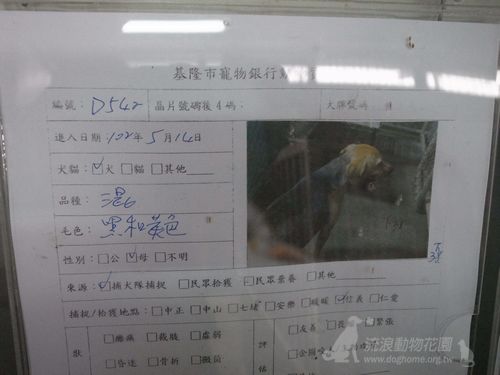 基隆市寵物銀行
編號：D542 晶片號碼後4碼： 大牌號碼
進入日期：102年5月14日
犬貓：☑犬 □貓 □其他
品種：混
毛色：黑和黃色
性別：□公 ☑母 □不明
來源：☑捕犬隊捕捉 □民眾拾獲 □民眾棄養 □其他
捕捉/拾獲地點：□中正 □中山 □七堵 □安樂 □暖暖 ☑信義 □仁愛
狀 □癱瘓 □截肢 □虛弱 評 □友善 □緊張
□昏迷 □骨折 估
流浪動物花園
www.doghome.org.tw